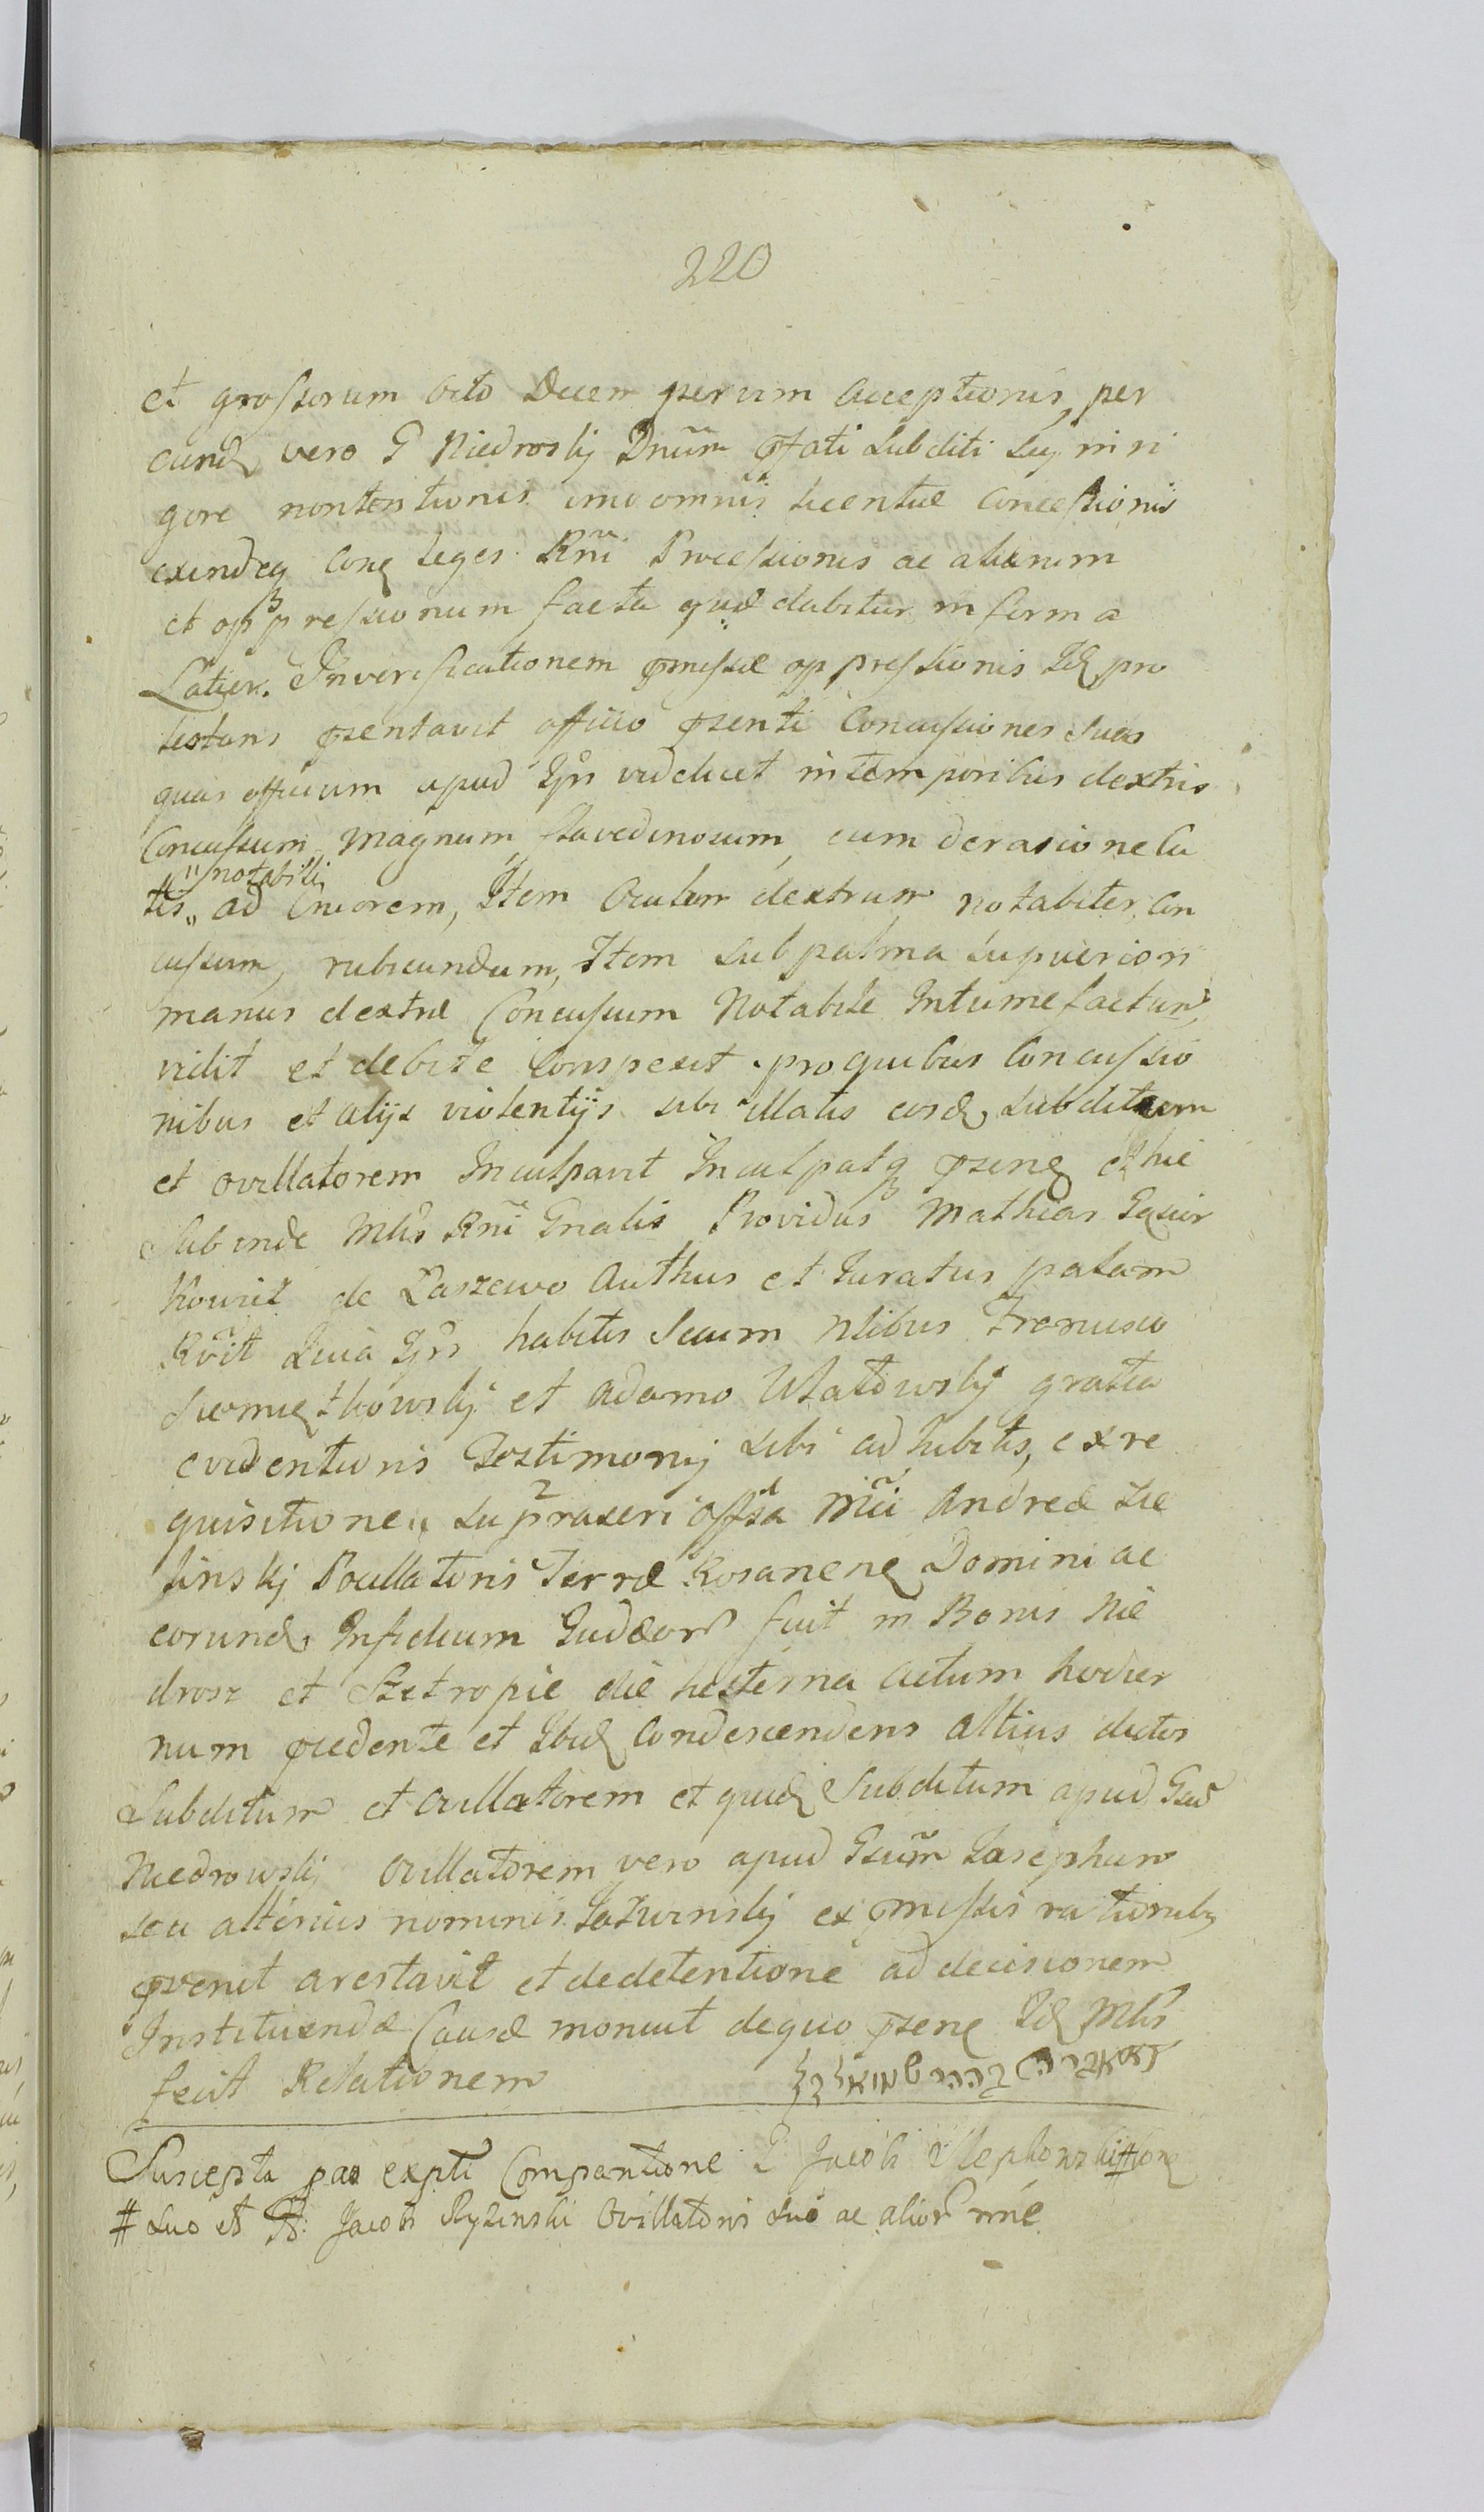 220
et grossorum octo Decem perum acceptionis, per
eund vero G Niedroskÿ Dnũm pfati Subditi Suÿ in ri
gore nontentionis imo omnis licentiæ Concessionis
exindeq Conq leges Rñi Processionis ac aliarum
et oppressionum facta quæ dabitur in forma
Latior. In verificationem pmissæ oppressionis Id pro
testans psentavit officio psenti Concussiones Suas
quas officium apud Ipsũ videlicet in temporibus dextris
Concussum magnum flavedinosum, cum derasione Cu
tis „ notabili „ ad Cruorem, Item Oculum dextrum notabiter Con
cussum, rubicundum, Item sub palma superiori
manus dextræ Concussum Notabile Intumefactum
vidit et debite Conspexit. pro quibus Concussio
nibus et alijs violentÿs sibi illatis eosd Subditum
et ovillatorem Inculpavit Inculpatq psenq et hic
Subinde Mlis Rñi Gnalis Providus Mathias Gąsior
Kowicz de Łaszewo Authus et Juratus palam
Rõit Quia Ips habitis Secum Nlibus Francisco
Siemiątkowskÿ et Adamo Ulatowskÿ gratia
evidentioris Testimonÿ sibi adhibitis, ex re
quisitione „ supraseri Offsa Mci Andreæ Zie
linskj Pocillatoris Terræ Rosanenq Domini ac
eorund Infidelium Judæorũ fuit in Bonis Nie
drosz et Sztropie die hesterna actum hodier
num pcedente et Ibid Condescendens altius dictos
Subditum et ovillatorem et quid Subditum apud Gsũ
Niedrowskj Ovillatorem vero apud Gsũm Josephum
seu alterius nominis Jaźwinskÿ ex pmissis rationibq
pvenit arestavit et de detentione ad decisionem
Instituendæ Causæ monuit de quo psenq Id Mlis
fecit Relationem
Suscepta par expti Comparitione G Jacobi
# Suo et Jacobi Ryzinski Ovillatoris Suo ac alior nie